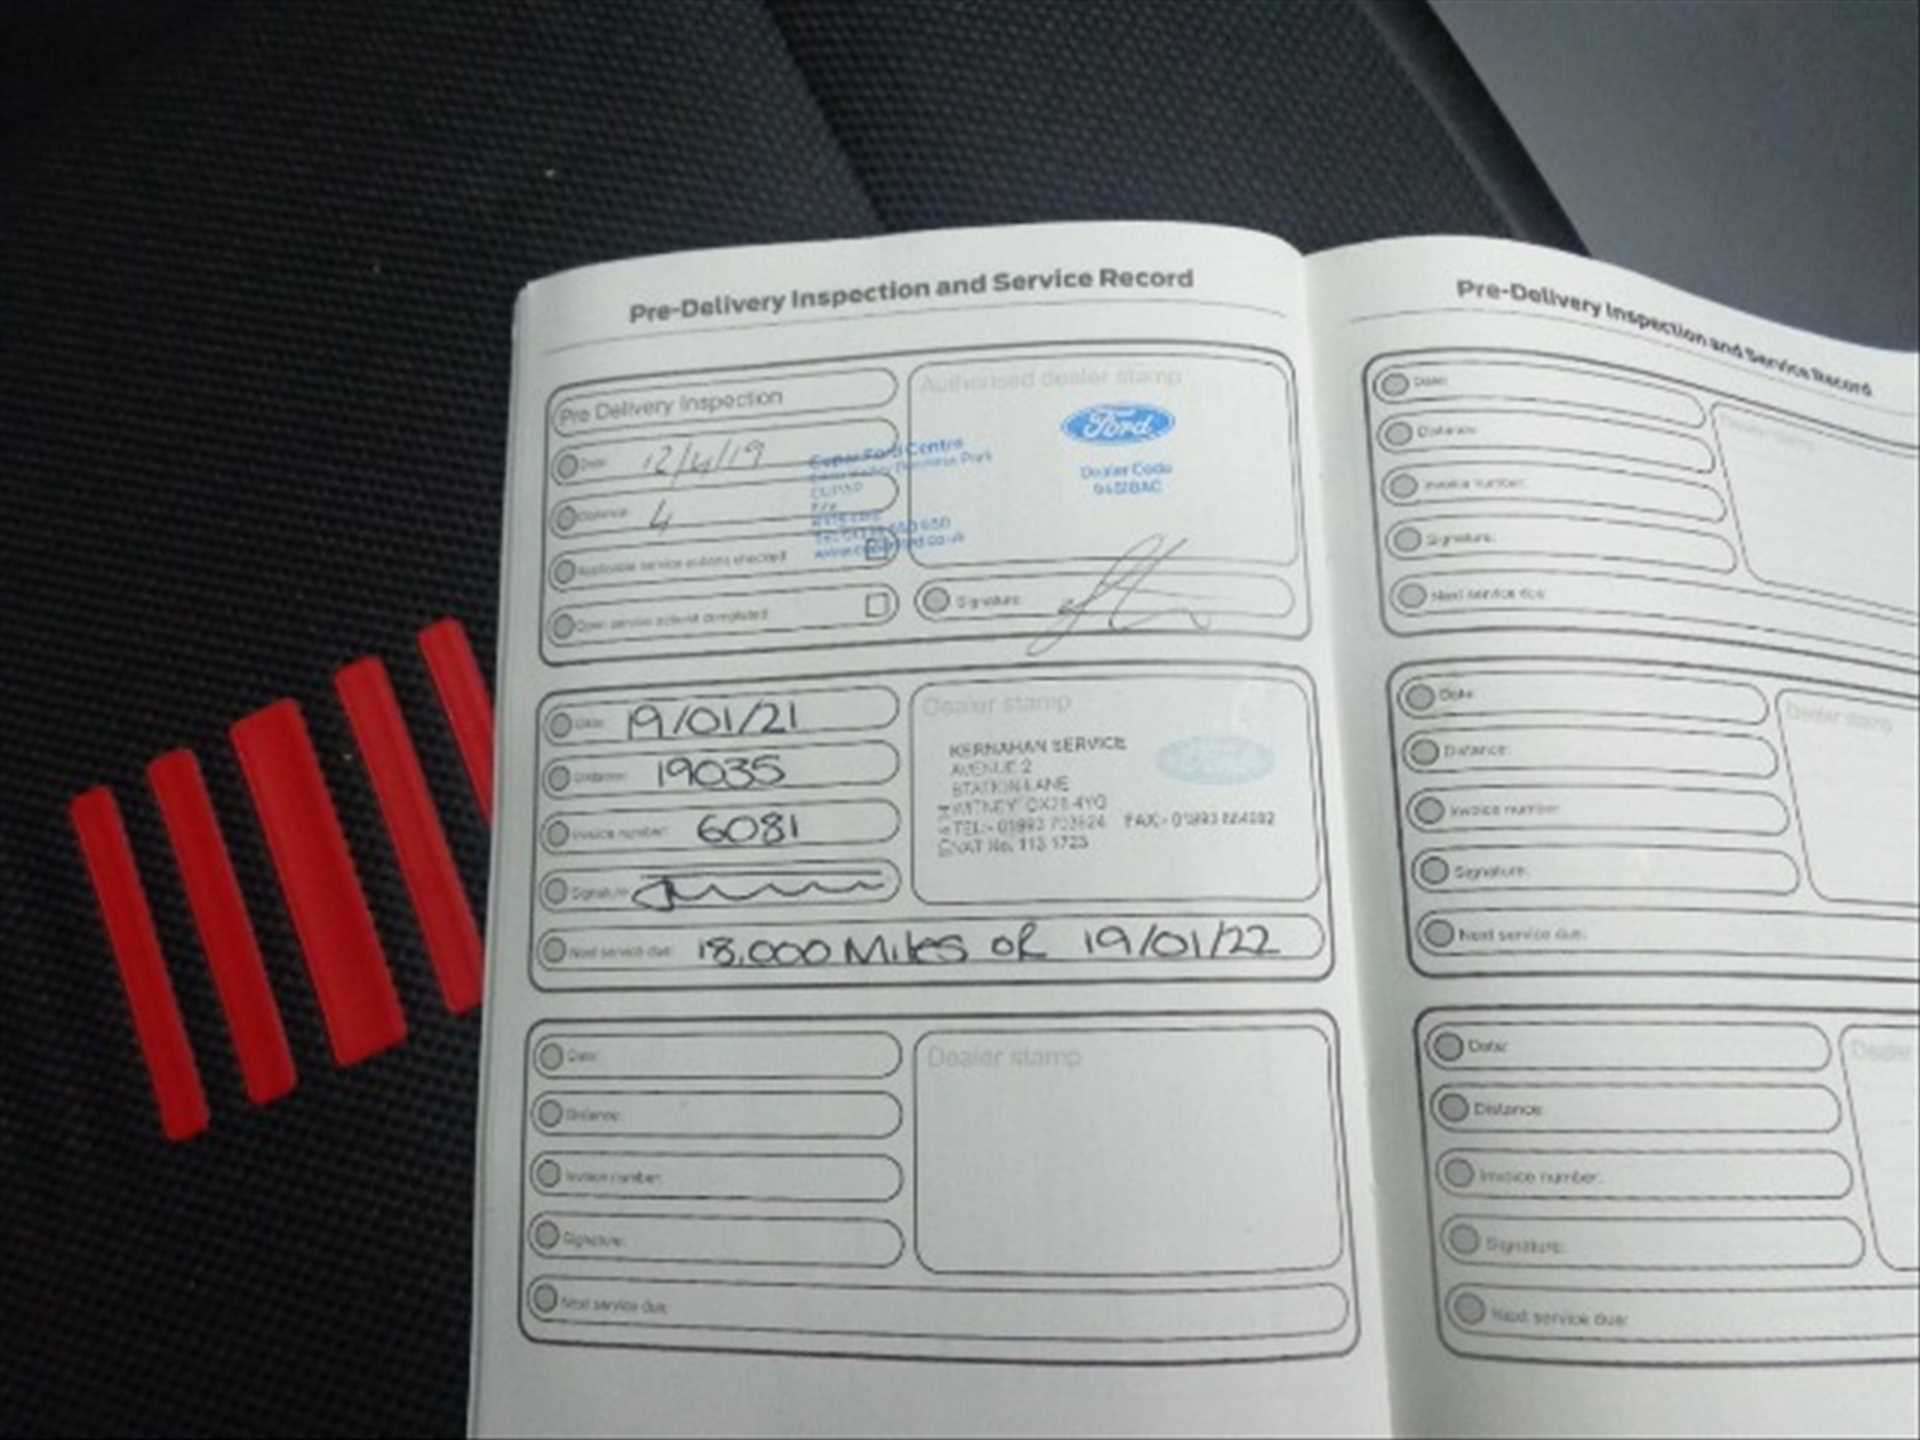 Pre-Delivery Inspection and Service Record
Pre Delivery Inspection
Date: 12/4/19
Distance: 4
Applicable service actions checked
Open service actions completed
Authorised dealer stamp
Cupar Ford Centre
Business Park
CUPAR
Fife
Ford
Dealer Code
Signature:
Date: 19/01/21
Distance: 19035
Invoice number: 6081
Signature:
Next service due: 18,000 Miles or 19/01/22
Dealer stamp
KERNAHAN SERVICE
AVENUE 2
STATION LANE
WITNEY OX28 4YG
TEL:- 01993 FAX:- 01993
VAT No. 113 1723
Ford
Date:
Distance:
Invoice number:
Signature:
Next service due:
Dealer stamp
Pre-Delivery Inspection and Service Record
Date:
Distance:
Invoice number:
Signature:
Next service due:
Dealer stamp
Date:
Distance:
Invoice number:
Signature:
Next service due:
Dealer stamp
Date:
Distance:
Invoice number:
Signature:
Next service due:
Dealer